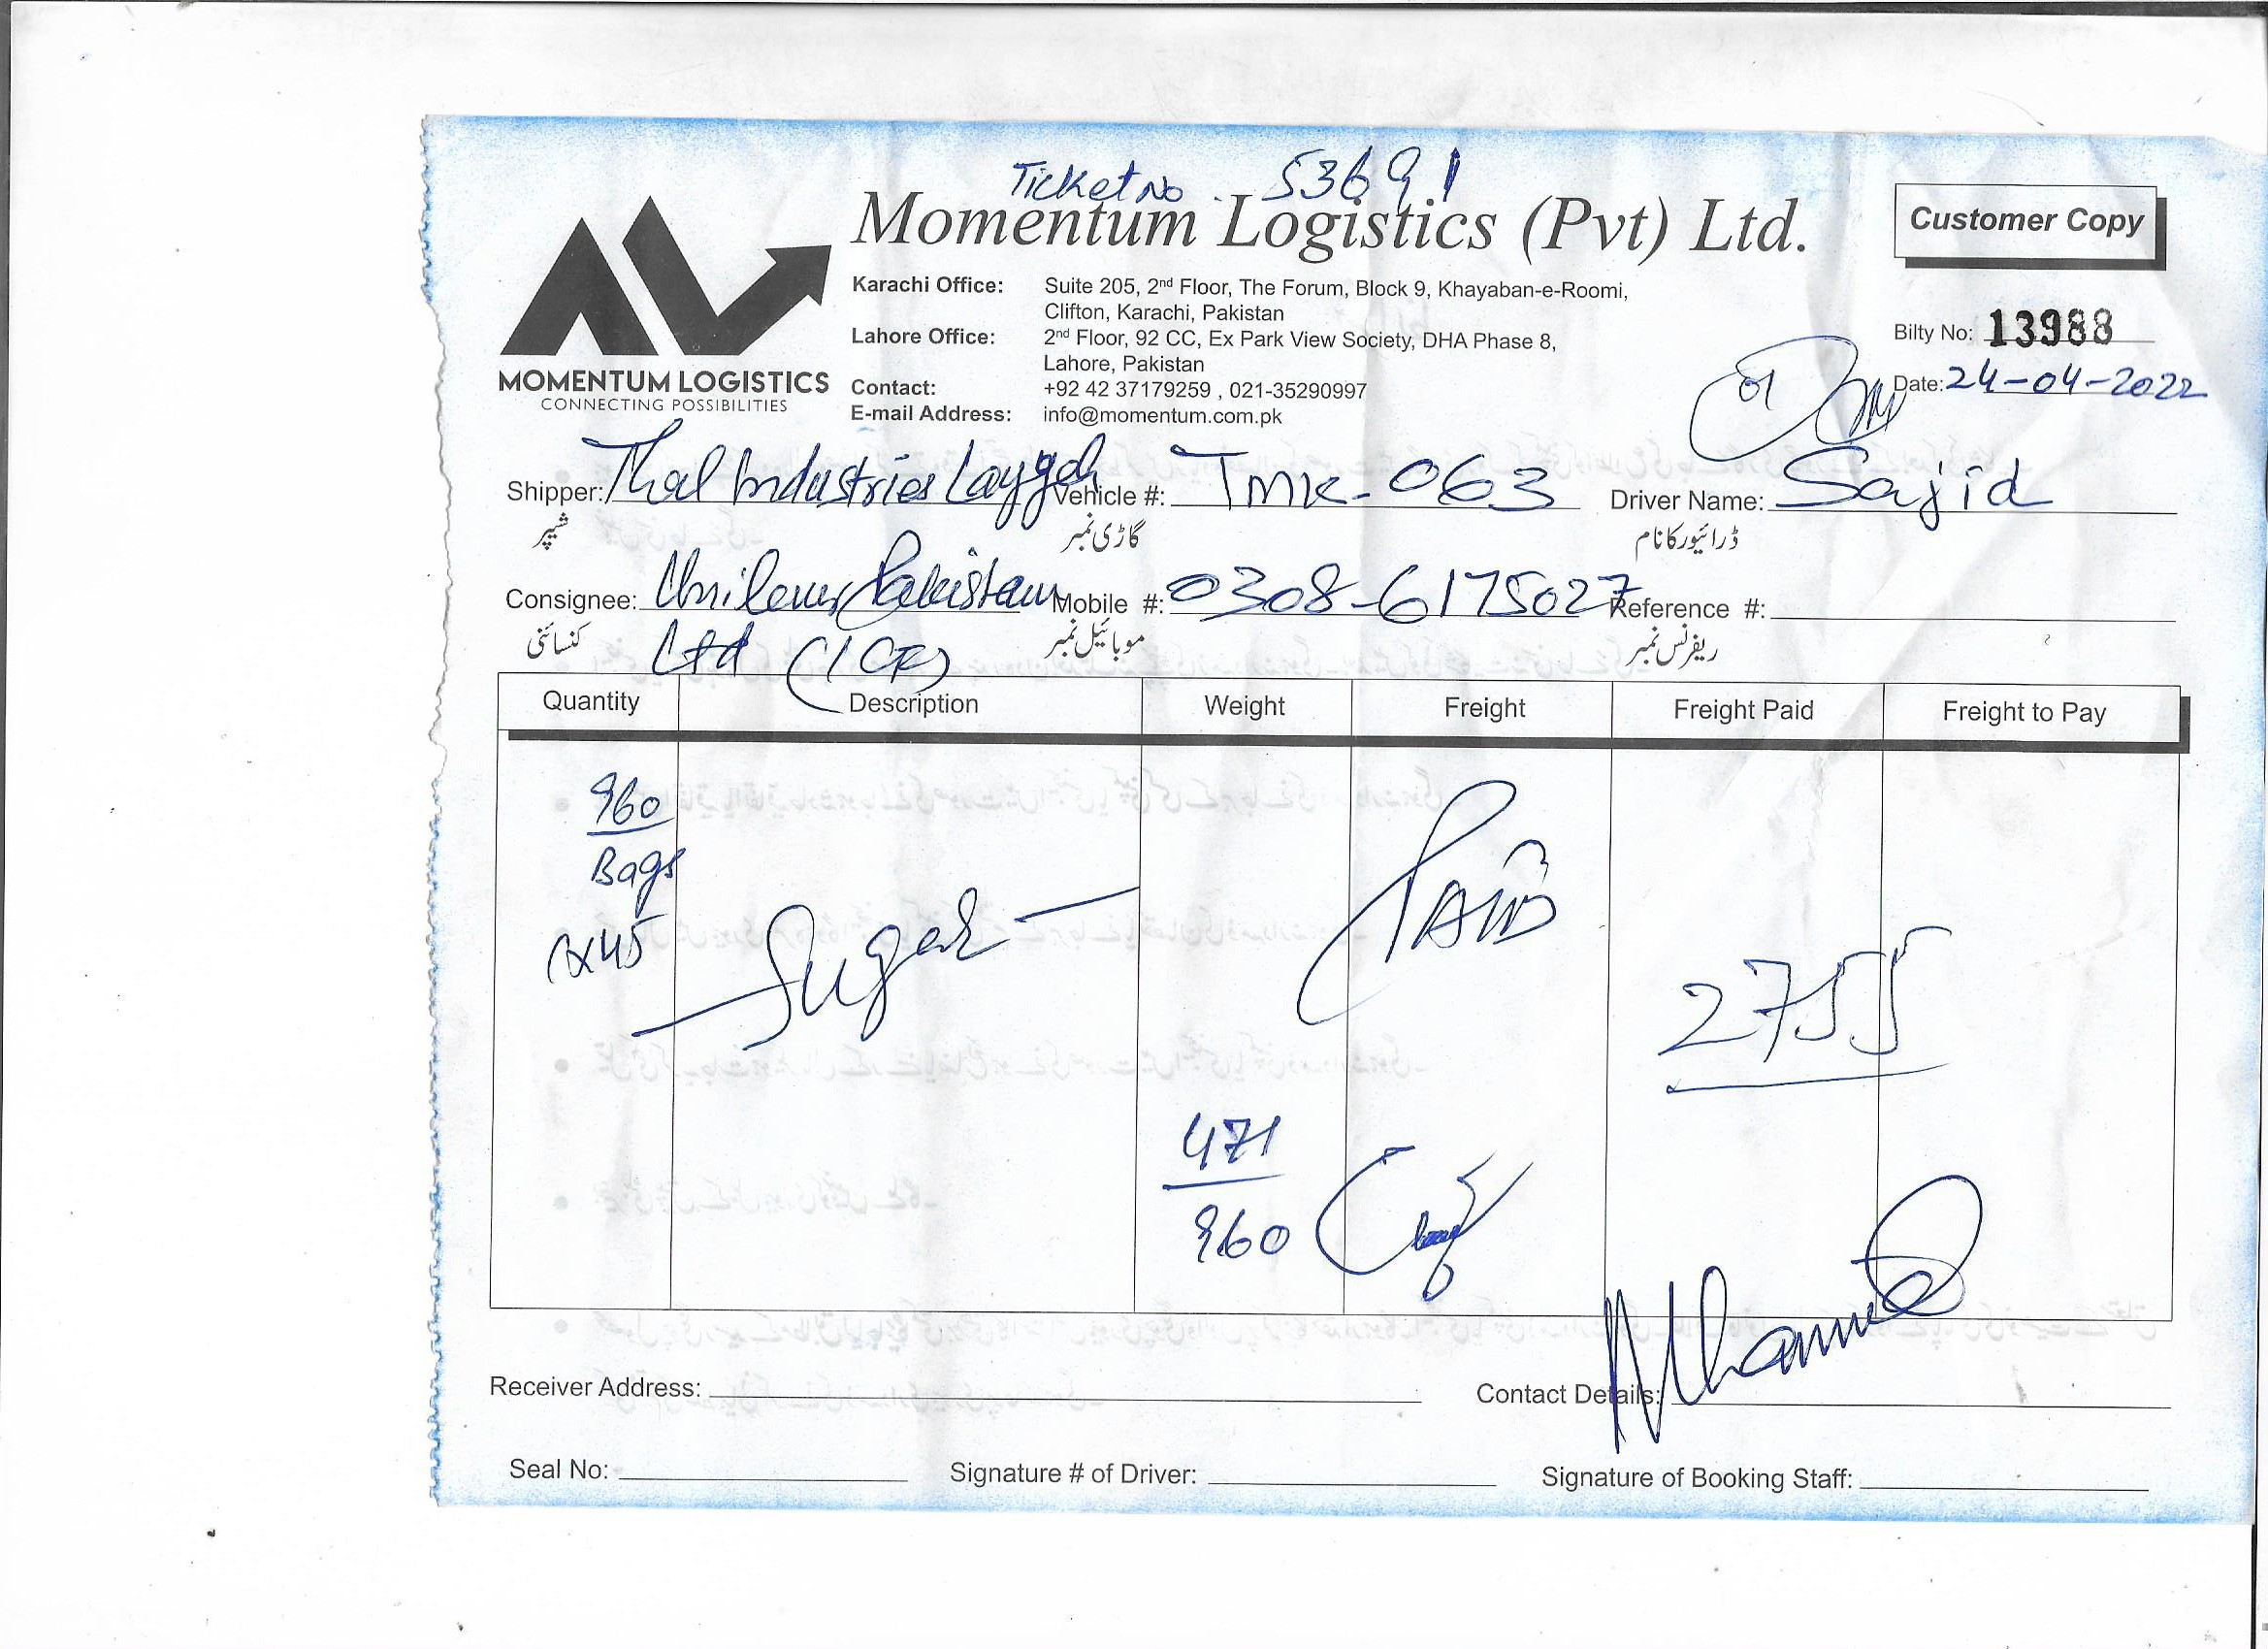 Ticket No. 53691
Momentum Logistics (Pvt) Ltd.
Customer Copy
MOMENTUM LOGISTICS
CONNECTING POSSIBILITIES
Karachi Office: Suite 205, 2nd Floor, The Forum, Block 9, Khayaban-e-Roomi,
Clifton, Karachi, Pakistan
Lahore Office: 2nd Floor, 92 CC, Ex Park View Society, DHA Phase 8,
Lahore, Pakistan
Contact: +92 42 37179259 , 021-35290997
E-mail Address: info@momentum.com.pk
Bilty No: 13988
Date: 24-04-2022
Shipper: Thal Industries Layyah Vehicle #: TMK-063 Driver Name: Sajid
شیپر گاڑی نمبر ڈرائیور کا نام
Consignee: Unilever Pakistan Mobile #: 0308-6175027 Reference #:
کنسائنی Ltd موبائیل نمبر ریفرنس نمبر
Quantity Description Weight Freight Freight Paid Freight to Pay
960
Bags
Sugar
PAID
2755
471
960
Receiver Address: Contact Details:
Seal No: Signature # of Driver: Signature of Booking Staff: